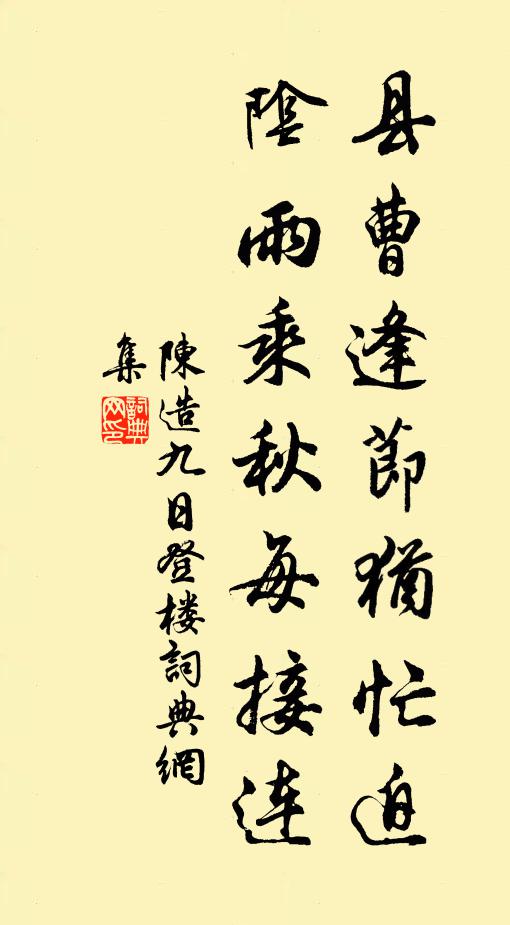 县曹逢節猶忙迫
陰雨乘秋每接連
陳造九日登楼詞典網
集
詞典网印